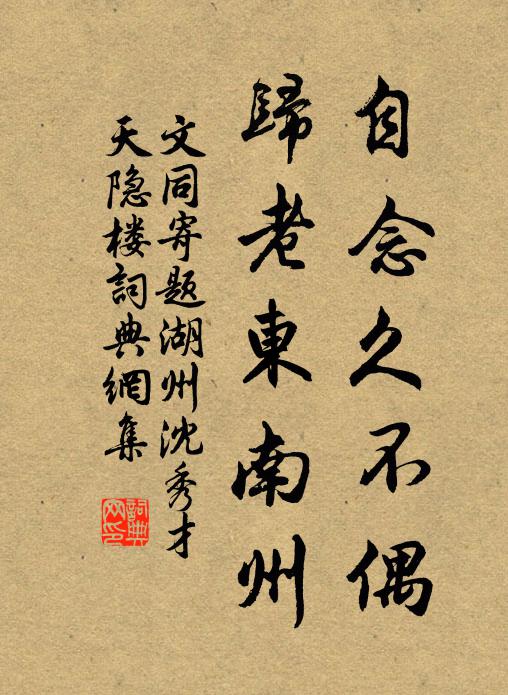 自念久不偶
歸老東南州
文同寄題湖州沈秀才
天隐楼詞典網集
詞典网印